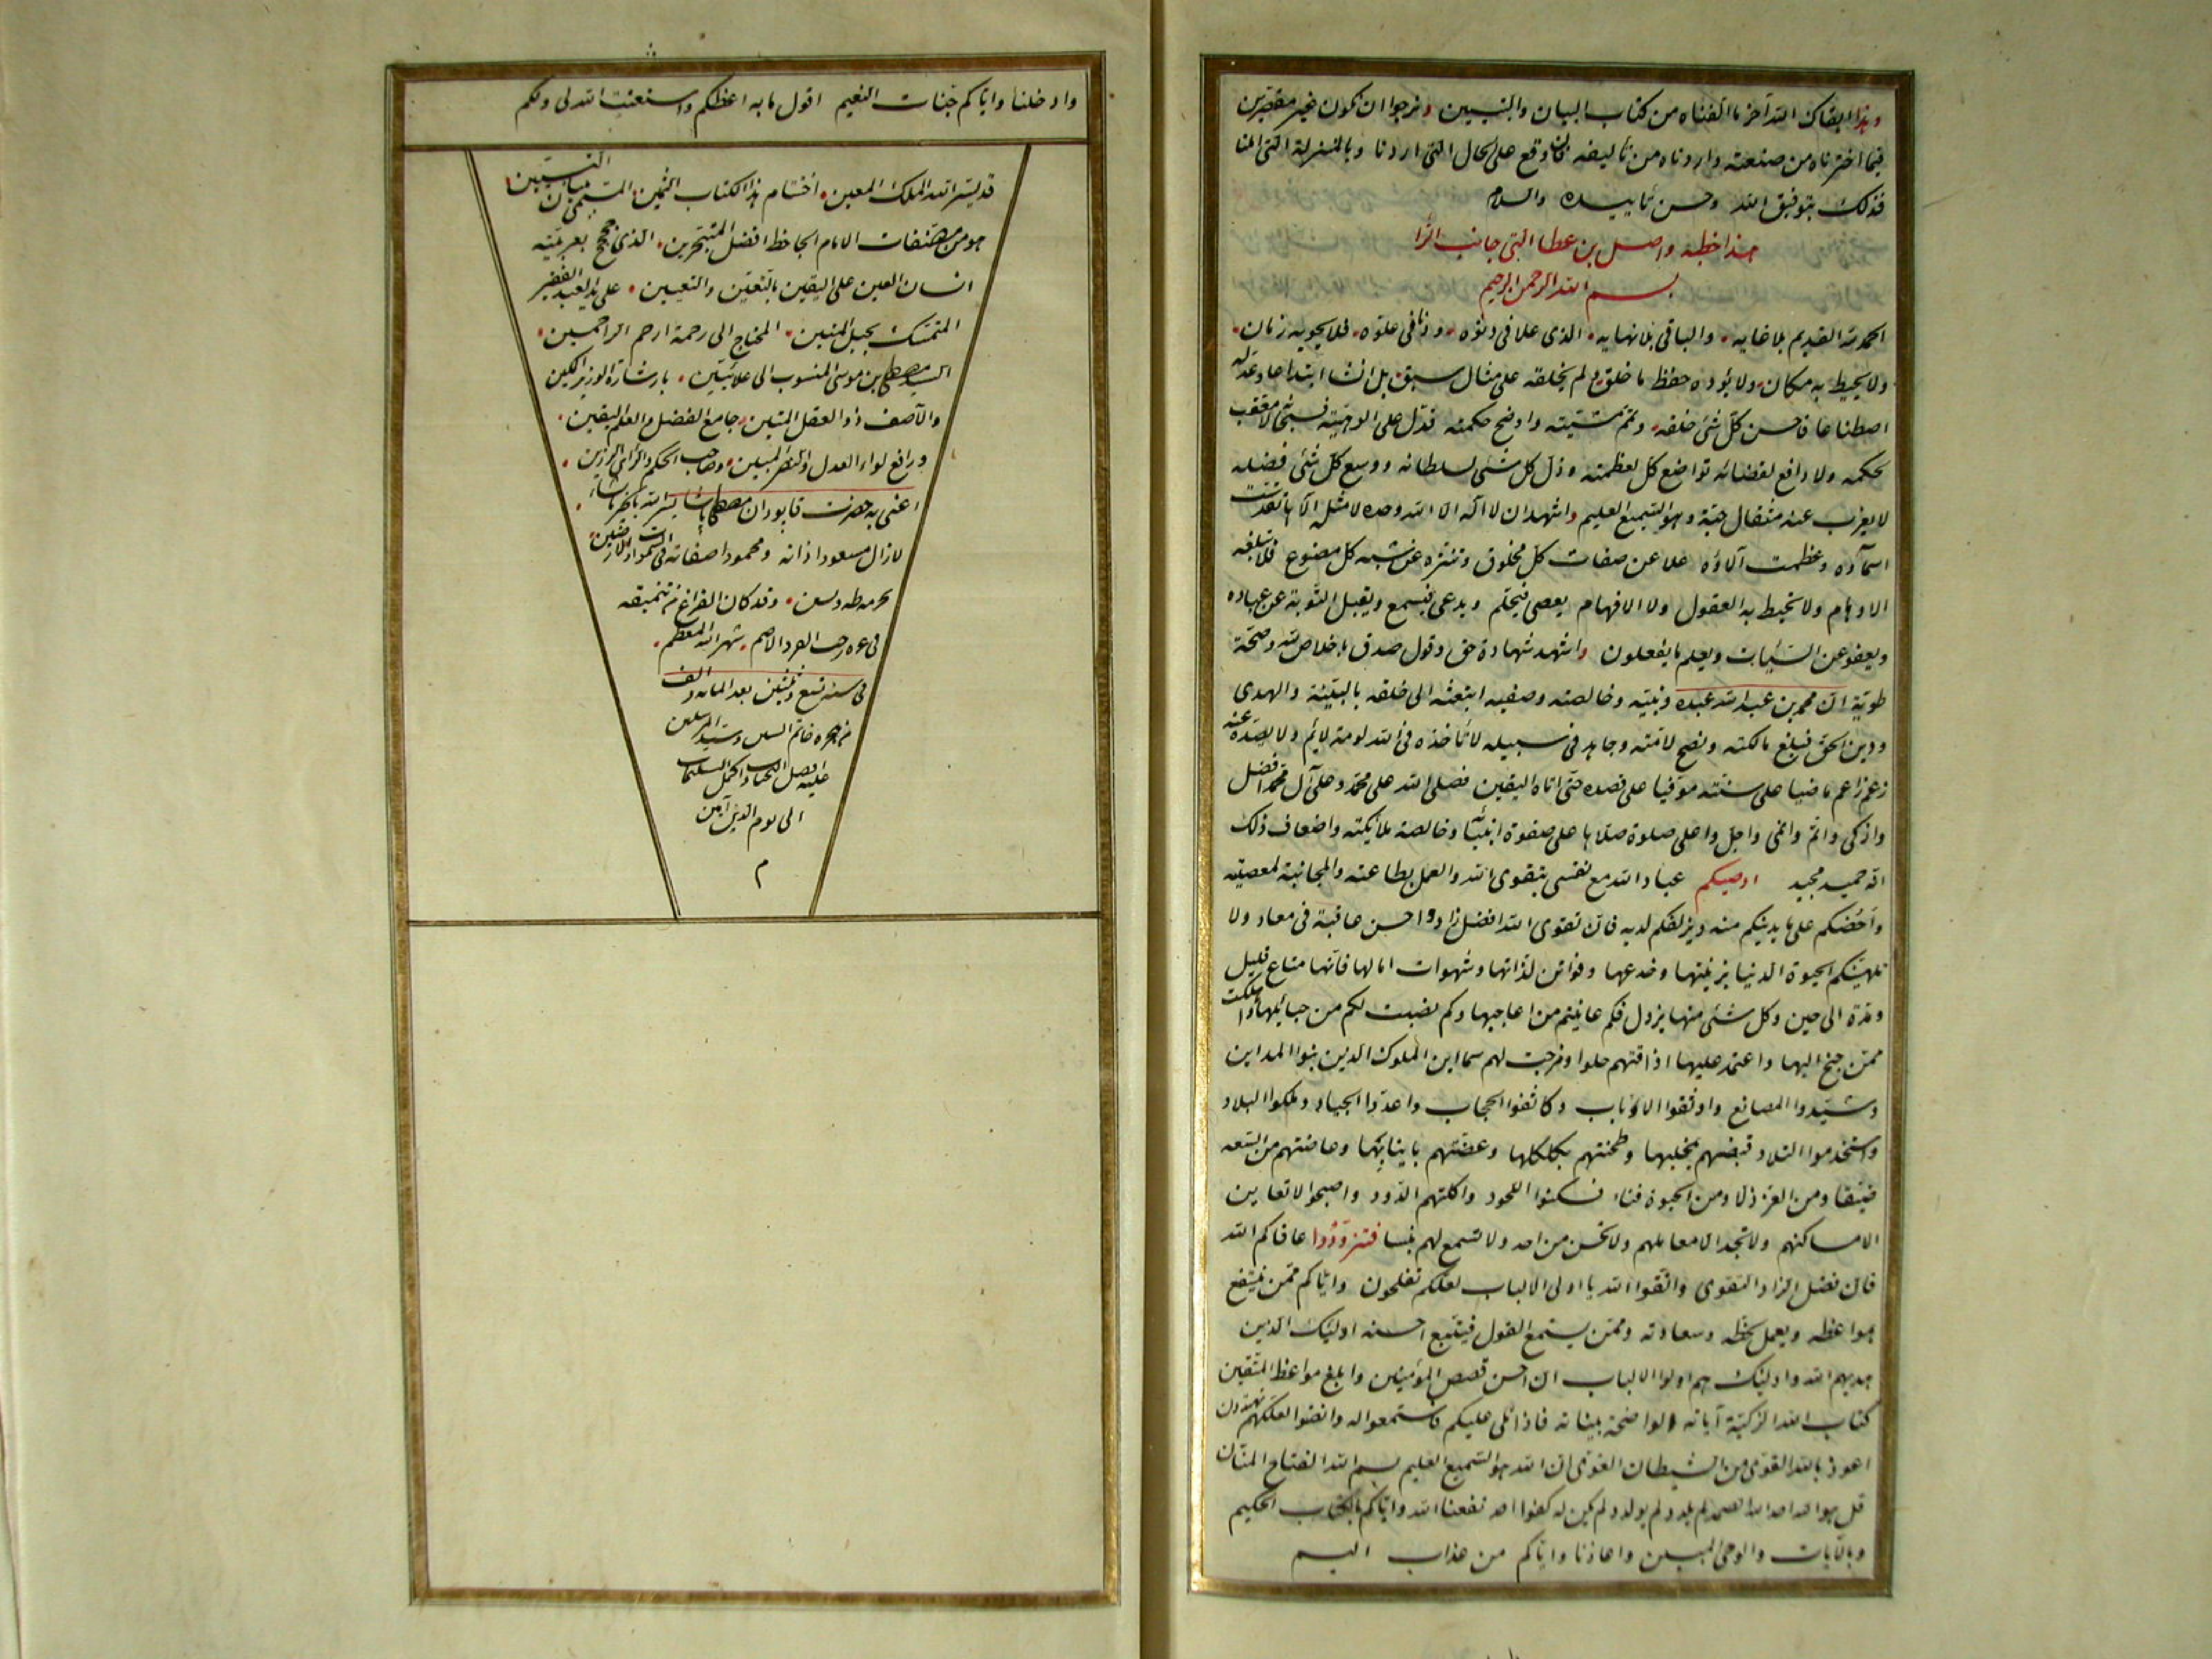 وهذا ابقاك الله آخر ما الفناه من كتاب البيان والتبيين ونرجوا ان نكون غير مقصرين
فيما اخترناه من صنعته واردناه من تأليفه فان وقع على الحال التى اردنا وبالمنزلة التى املنا
فذلك بتوفيق الله وحسن تأييده والسلام
هذا خطبة واصل بن عطا التى جانب الراء
بسم الله الرحمن الرحيم
الحمد لله القديم بلا غايه والباقى بلا نهايه الذى علا فى دنوه ودنا فى علوه فلا يحويه زمان
ولا يحيط به مكان ولا يؤده حفظ ما خلق ولم يخلقه على مثال سبق بل انشاه ابتداعا وعدله
اصطناعا فاحسن كل شئ خلقه وتمم مشيئته واوضح حكمته فدل على الوهيته فسبحانه لا معقب
لحكمه ولا دافع لقضائه تواضع كل لعظمته وذل كل شئ لسلطانه ووسع كل شئ فضله
لا يعزب عنه مثقال حبة وهو السميع العليم واشهد ان لا اله الا الله وحده لا مثل له الها تقدست
اسماؤه وعظمت آلاؤه علا عن صفات كل مخلوق وتنزه عن شبه كل مصنوع فلا تبلغه
الاوهام ولا تحيط به العقول ولا الافهام يعصى فيحلم ويدعى فيسمع ويقبل التوبة عن عباده
ويعفو عن السيات ويعلم ما يفعلون واشهد شهادة حق وقول صدق باخلاص نية وصحة
طوية ان محمد بن عبد الله عبده ونبيه وخالصته وصفيه ابتعثه الى خلقه بالبينة والهدى
ودين الحق فبلغ مالكته ونصح لامته وجاهد فى سبيله لا تأخذه فى الله لومة لايم ولا يصده عنه
زعم زاعم ماضيا على سنته موفيا على قصده حتى اتاه اليقين فصلى الله على محمد وعلى آل محمد افضل
وازكى واتم وانمى واجل واعلى صلوة صلاها على صفوة انبيائه وخالصة ملائكته واضعاف ذلك
انه حميد مجيد اوصيكم عباد الله مع نفسى بتقوى الله والعمل بطاعته والمجانبة لمعصيته
واحضكم على ما يدنيكم منه ويزلفكم لديه فان تقوى الله افضل زاد واحسن عاقبة فى معاد ولا
تلهينكم الحيوة الدنيا بزينتها وخدعها وفواتن لذاتها وشهوات امالها فانها متاع قليل
ومدة الى حين وكل شئ منها يزول فكم عاينتم من اعاجيبها وكم نصبت لكم من حبائلها واهلكت
ممن جنح اليها واعتمد عليها اذاقتهم حلوا ومزجت لهم سما اين الملوك الذين بنوا المداين
وشيدوا المصانع واوثقوا الابواب وكاثفوا الحجاب واعدوا الجياد وملكوا البلاد
واستخدموا التلاد قبضتهم بمخلبها وطحنتهم بكلكلها وعضتهم بانيابها وعاضتهم من السعه
ضيقا ومن العز ذلا ومن الحيوة فناء فسكنوا اللحود واكلتهم الدود واصبحوا لا تعاين
الا مساكنهم ولا تجد الا معالمهم ولا تحس من احد ولا تسمع لهم نبسا فتزودوا عافاكم الله
فان افضل الزاد التقوى واتقوا الله يا اولى الالباب لعلكم تفلحون واياكم ممن ينتفع
بمواعظه ويعمل لحظه وسعادته وممن يستمع القول فيتبع احسنه اوليك الذين
هديهم الله واوليك هم اولوا الالباب ان احسن قصص المؤمنين وابلغ مواعظ المتقين
كتاب الله الزكية آياته الواضحة بيناته فاذا تلى عليكم فاستمعوا له وانصتوا لعلكم تهتدون
اعوذ بالله القوى من الشيطان الغوى ان الله هو السميع العليم بسم الله الفتاح المنان
قل هو الله احد الله الصمد لم يلد ولم يولد ولم يكن له كفوا احد نفعنا الله واياكم بالكتاب الحكيم
وبالآيات والوحى المبين واعاذنا واياكم من عذاب اليم
وادخلنا واياكم جنات النعيم اقول ما به اعظكم واستعتب الله لى ولكم
قد يسر الله الملك المعين اختتام هذا الكتاب الثمين المسمى ببيان التبيين
هو من مصنفات الامام الجاحظ افضل المتبحرين الذى بعربيته
انسان العين على اليقين بالتعين والتعيين على يد العبد الفقير
المتمسك بحبل المتين المحتاج الى رحمة ارحم الراحمين
السيد مصطفى بن موسى المنسوب الى علائيتين بارشارة الوزير المكين
والآصف ذو العقل المتين جامع الفضل والعلم اليقين
ورافع لواء العدل والنصر المبين وصاحب الحكم والراى الرزين
اعنى به حضرت قابودان مصطفى پاشا يسر الله بالخير ما يشاء
لا زال مسعودا ذاته ومحمودا صفاته فى السموات والارضين
بحرمة طه ويس وقد كان الفراغ من تنميقه
فى غره رجب الفرد الاصم شهر الله المعظم
فى سنه تسع وثلثين بعد المائه والف
من هجره خاتم النبيين وسيد المرسلين
عليه افضل التحيات واكمل التسليمات
الى يوم الدين آمين
م